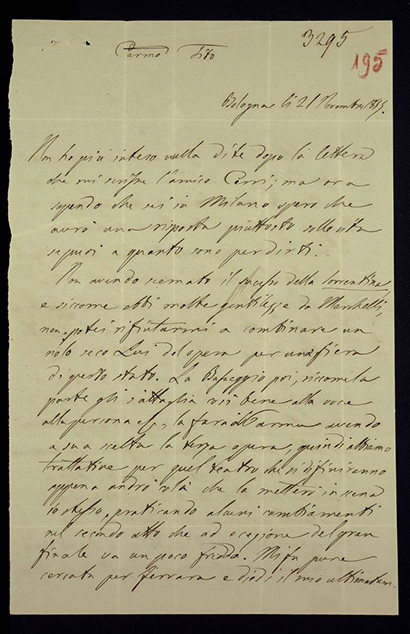 3295
195
Carmo Tito
Bologna li 21 Novembre 1857.
Non ho più inteso nulla di te dopo la lettera
che mi scrisse l'amico Cerri; ma ora
sapendo che sei in Milano spero che
avrò una risposta piuttosto sollecita
se puoi a quanto sono per dirti.
Non avendo scemato il successo della Sorrentina
e siccome ebbi molte gentilezze da Marchelli,
non potei rifiutarmi a combinare un
nolo seco Lui dell'opera per una fiera
di questo stato. La Boseggio poi, siccome la
parte gli s'attaglia così bene alla voce
alla persona la farà a Parma avendo
a sua scelta la terza opera, quindi abbiamo
trattative per quel teatro che si difiniranno
appena andrò colà che la metterò in scena
io stesso, praticando alcuni cambiamenti
nel secondo atto che ad eccezione del gran
finale va un poco freddo. Mi fu pure
cercata per Ferrara e diedi il mio ultimatum.